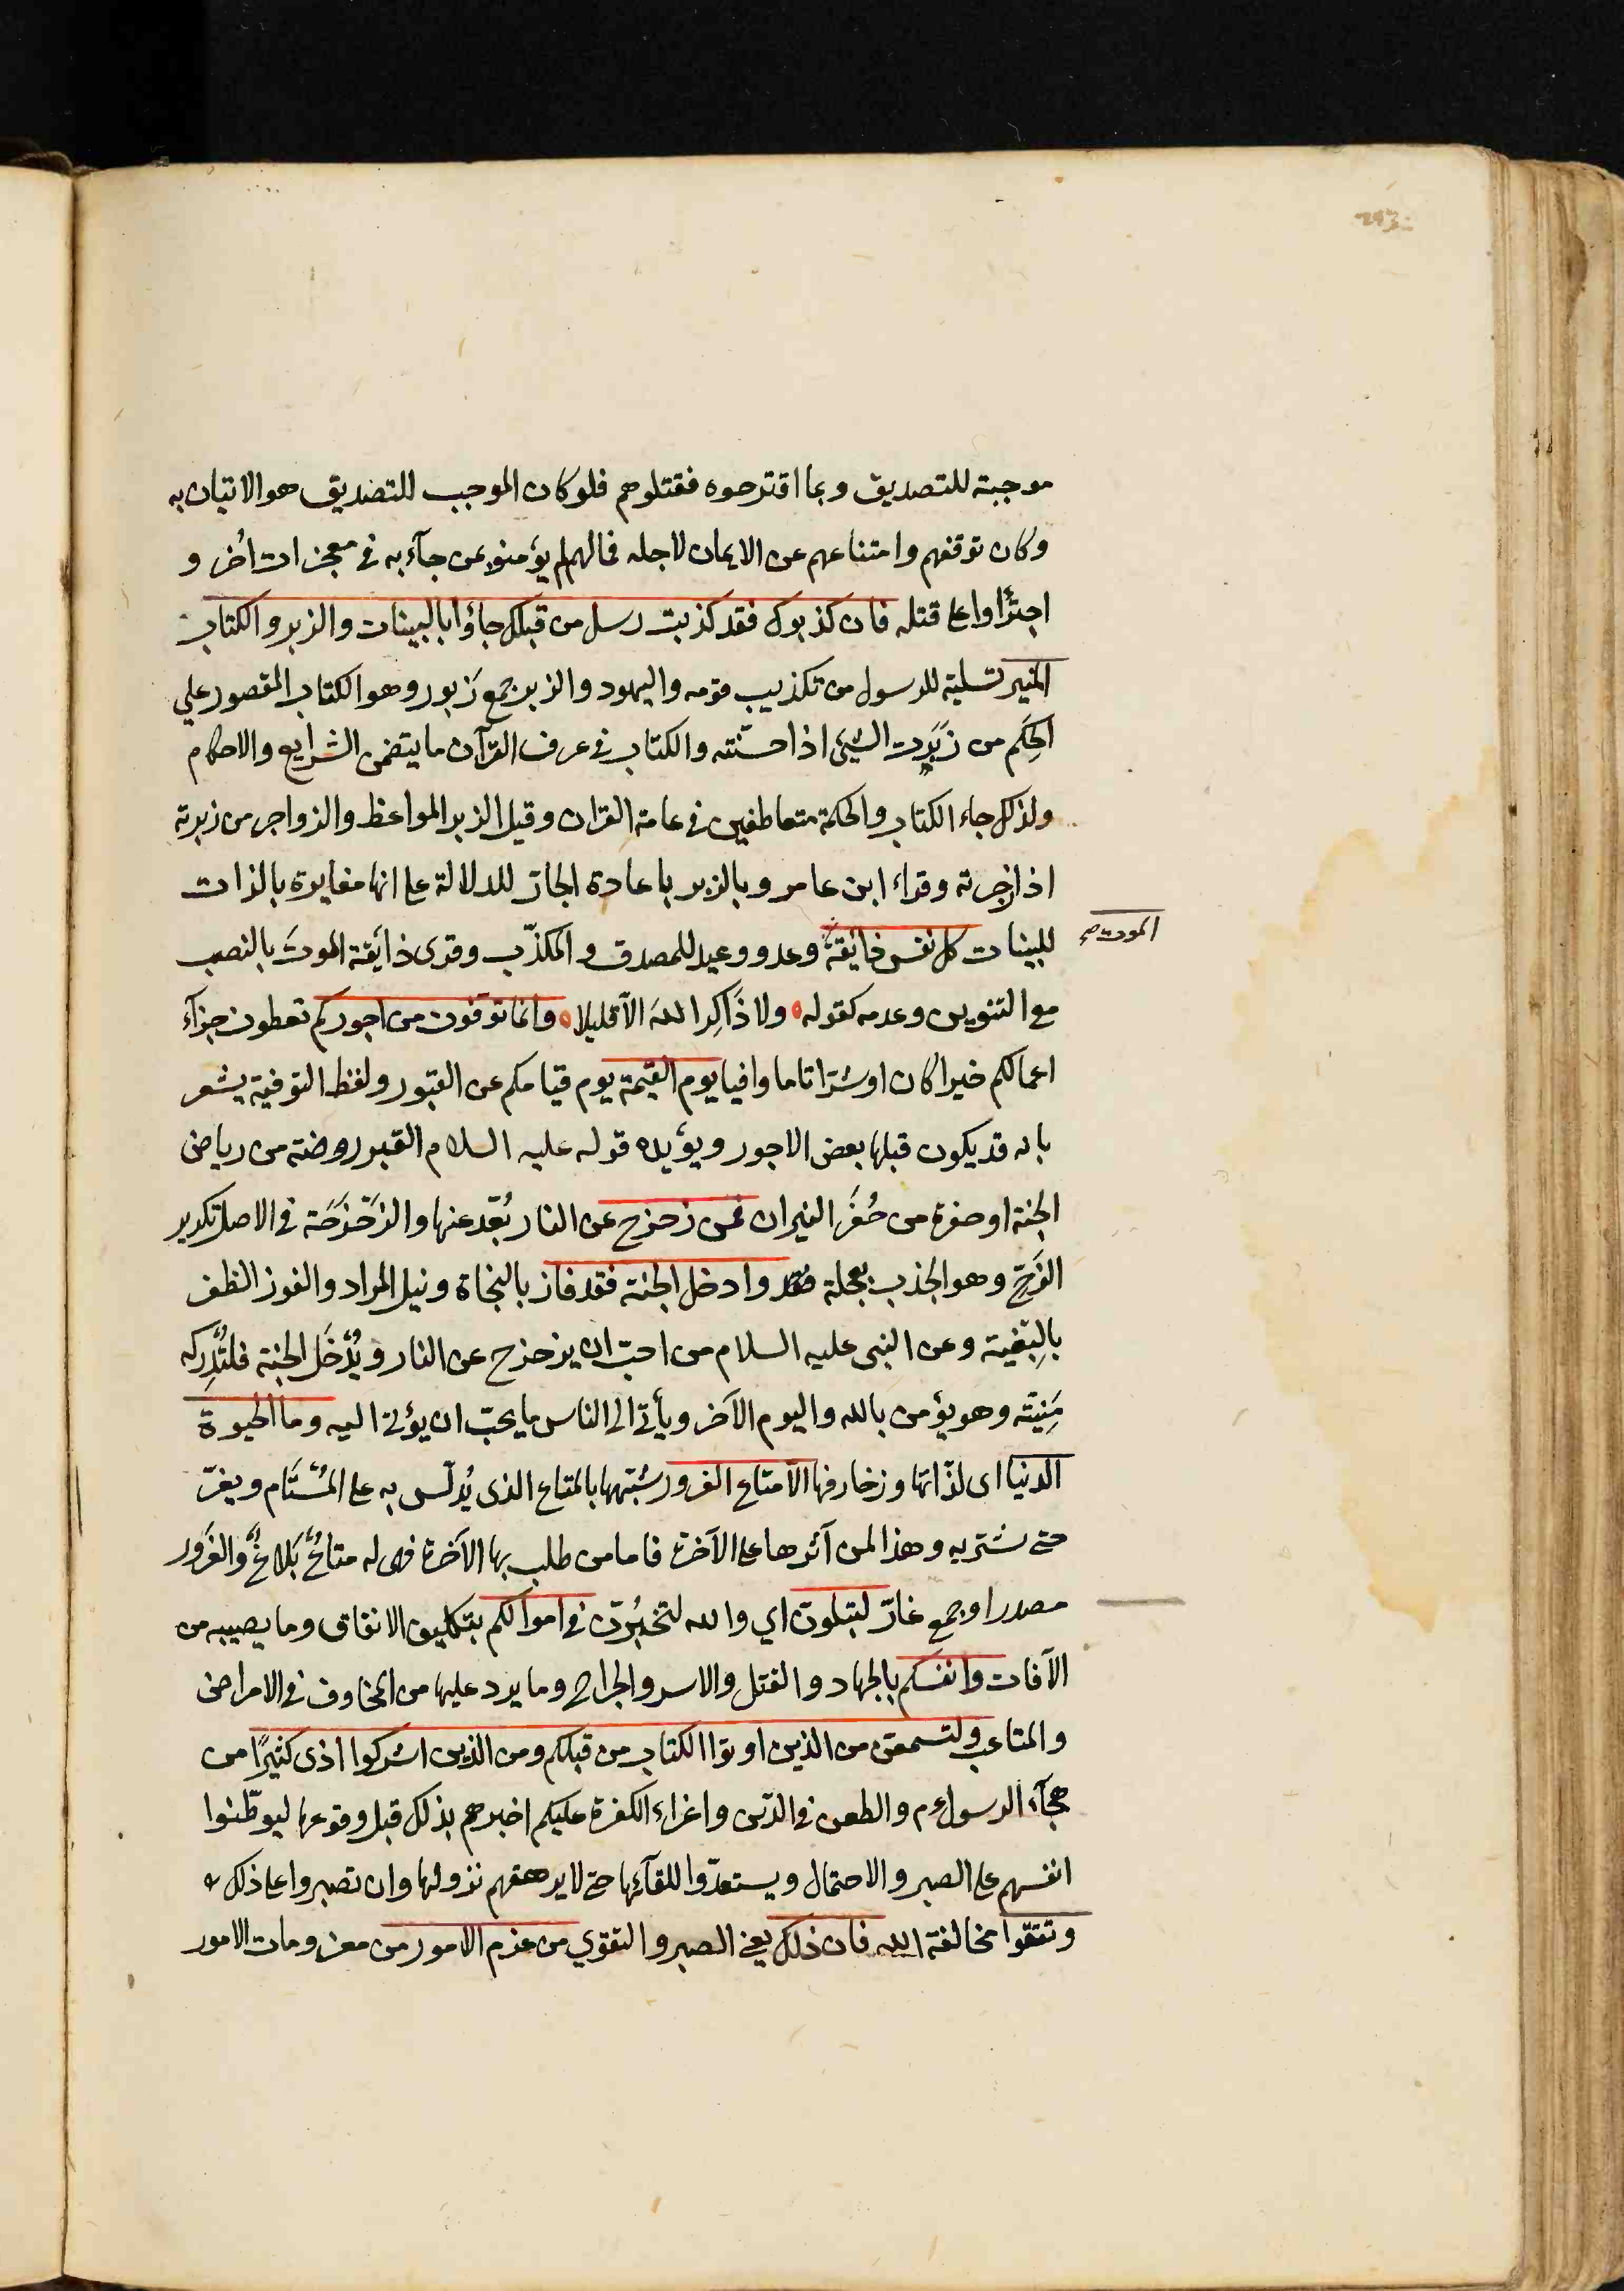 موجبة للتصديق وبما اقترحوه فقتلوهم فلو كان الموجب للتصديق هو الاتيان به
وكان توقفهم وامتناعهم عن الايمان لاجله فما لهم لم يؤمنوا بمن جآء به في معجزات اُخر و
اجترَأوا على قتله فان كذبوك فقد كذبت رسل من قبلك جاؤا بالبينات والزبر والكتاب
المنير تسلية للرسول من تكذيب قومه واليهود والزبر جمع زَبور وهو الكتاب المقصور علي
الحِكَم من زَبَرت الشيئ اذا حسّنته والكتاب في عرف القرآن ما يتضمن الشرايع والاحكام
ولذلك جاء الكتاب والحكمة متعاطفين في عامة القران وقيل الزبر المواعظ والزواجر من زبرته
اذا زجرته وقراء ابن عامر وبالزبر باعادة الجارّ للدلالة على انها مغايرة بالذات
للبينات كل نفس ذايقة وعد ووعيد للمصدق والمكذّب وقرى ذايقة الموتَ بالنصب
الموت صح
مع التنوين وعدمه كقوله ولا ذَاكِرَ اللهَ الاّ قليلا وانما توفون من اجوركم تعطون جزآء
اعمالكم خيرا كان او شرّا تاما وافيا يوم القيمة يوم قيامكم عن القبور ولفظ التوفية يشعر
بانه قد يكون قبلها بعض الاجور ويؤيده قوله عليه السلام القبر روضة من رياض
الجنة او حفرة من حُفَر النيران فمن زحزح عن النار بُعّد عنها والزَحْزَحَة في الاصل تكرير
الزَحّ وهو الجذب بعجلة فقد وادخل الجنة فقد فاز بالنجاة ونيل المراد والفوز الظفر
بالبِغْية وعن النبي عليه السلام من احبّ ان يزحزح عن النار ويُدْخَل الجنة فلتُدْرِكه
مَنِيَّته وهو يؤمن بالله واليوم الآخر ويأتي الى الناس ما يحبّ ان يؤتى اليه وما الحيوة
الدنيا اى لذّاتها وزخارفها الاّ متاع الغرور شبّهها بالمتاع الذى يُدلّس به على المُسْتَام ويغرّ
حتى يشتريه وهذا لمن آثرها على الآخرة فاما من طلب بها الآخرة فهى له متاعٌ بَلاغٌ والغَرور
مصدر او جمع غارّ لتبلونّ اي والله لتختبُرنّ في اموالكم بتكليف الانفاق وما يصيبه من
الآفات وانفسكم بالجهاد والقتل والاسر والجراح وما يرد عليها من المخاوف في الامراض
والمتاعب ولتسمعن من الذين اوتوا الكتاب من قبلكم ومن الذين اشركوا اذى كثيرًا من
هجآء الرسول عم والطعن في الدّين واغراء الكفرة عليكم اخبرهم بذلك قبل وقوعها ليوطّنوا
انفسهم على الصبر والاحتمال ويستعدّوا للقآئها حتى لا يرهقهم نزولها وان تصبروا على ذلك
وتتّقوا مخالفة الله فان ذلك يعني الصبر والتقوي من عزم الامور من معزومات الامور